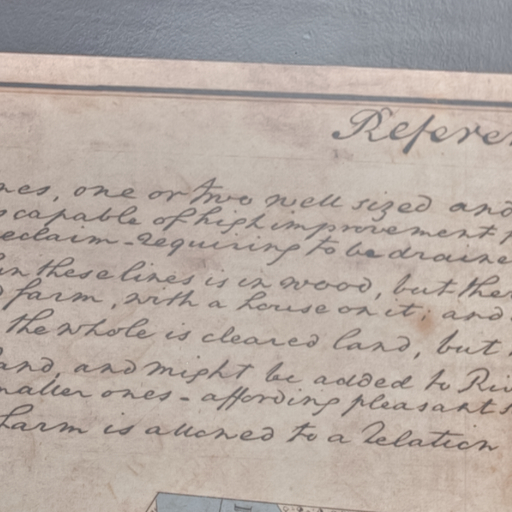 Refere
nes, one or two well sized and
capable of high improvement
eclaim - requiring to be draine
in these lines is in wood, but the
farm, with a house on it; and
the whole is cleared land, but
and, and might be added to Riv
maller ones - affording pleasant s
Farm is allowed to a Relation